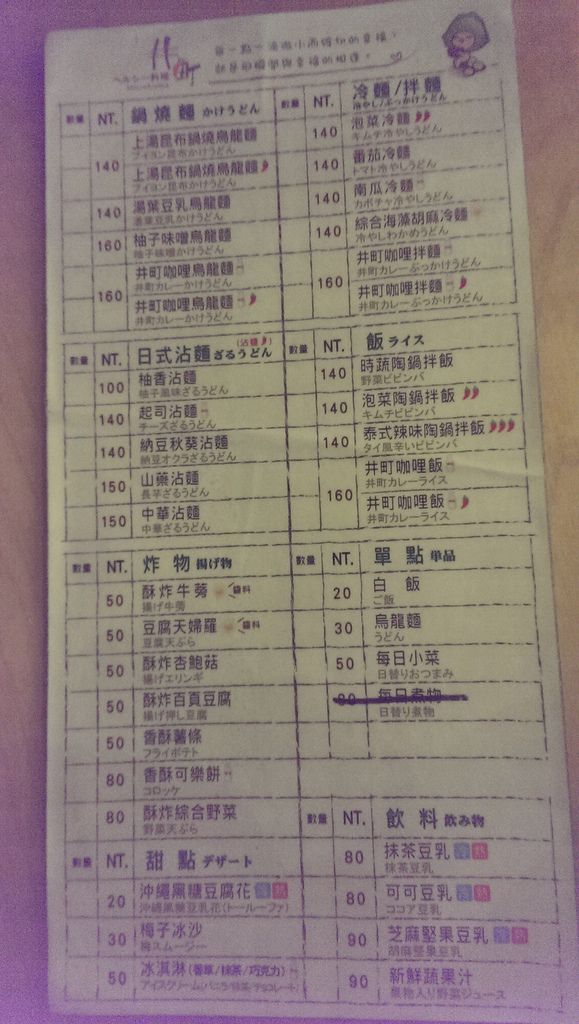 井町
數量 NT. 鍋燒麵 かけうどん
140 上湯昆布鍋燒烏龍麵
ブイヨン昆布かけうどん
上湯昆布鍋燒烏龍麵
ブイヨン昆布かけうどん
140 湯葉豆乳烏龍麵
湯葉豆乳かけうどん
160 柚子味噌烏龍麵
柚子味噌かけうどん
160 井町咖哩烏龍麵
井町カレーかけうどん
井町咖哩烏龍麵
井町カレーかけうどん
數量 NT. 冷麵/拌麵
冷やし/ぶっかけうどん
140 泡菜冷麵
キムチ冷やしうどん
140 番茄冷麵
トマト冷やしうどん
140 南瓜冷麵
カボチャ冷やしうどん
140 綜合海藻胡麻冷麵
冷やしわかめうどん
160 井町咖哩拌麵
井町カレーぶっかけうどん
井町咖哩拌麵
井町カレーぶっかけうどん
數量 NT. 日式沾麵 ざるうどん
100 柚香沾麵
柚子風味ざるうどん
140 起司沾麵
チーズざるうどん
140 納豆秋葵沾麵
納豆オクラざるうどん
150 山藥沾麵
長芋ざるうどん
150 中華沾麵
中華ざるうどん
數量 NT. 飯 ライス
140 時蔬陶鍋拌飯
野菜ビビンバ
140 泡菜陶鍋拌飯
キムチビビンバ
140 泰式辣味陶鍋拌飯
タイ風辛いビビンバ
160 井町咖哩飯
井町カレーライス
井町咖哩飯
井町カレーライス
數量 NT. 炸物 揚げ物
50 酥炸牛蒡 醬料
揚げ牛蒡
50 豆腐天婦羅 醬料
豆腐天ぷら
50 酥炸杏鮑菇
揚げエリンギ
50 酥炸百頁豆腐
揚げ押し豆腐
50 香酥薯條
フライポテト
80 香酥可樂餅
コロッケ
80 酥炸綜合野菜
野菜天ぷら
數量 NT. 單點 単品
20 白飯
ご飯
30 烏龍麵
うどん
50 每日小菜
日替りおつまみ
80 每日煮物
日替り煮物
數量 NT. 甜點 デザート
20 沖繩黑糖豆腐花 冷 熱
沖縄黒糖豆乳花(トールーファ)
30 梅子冰沙
梅スムージー
50 冰淇淋(香草/抹茶/巧克力)
アイスクリーム(バニラ/抹茶/チョコレート)
數量 NT. 飲料 飲み物
80 抹茶豆乳 冷 熱
抹茶豆乳
80 可可豆乳 冷 熱
ココア豆乳
90 芝麻堅果豆乳 冷 熱
胡麻堅果豆乳
90 新鮮蔬果汁
果物入り野菜ジュース